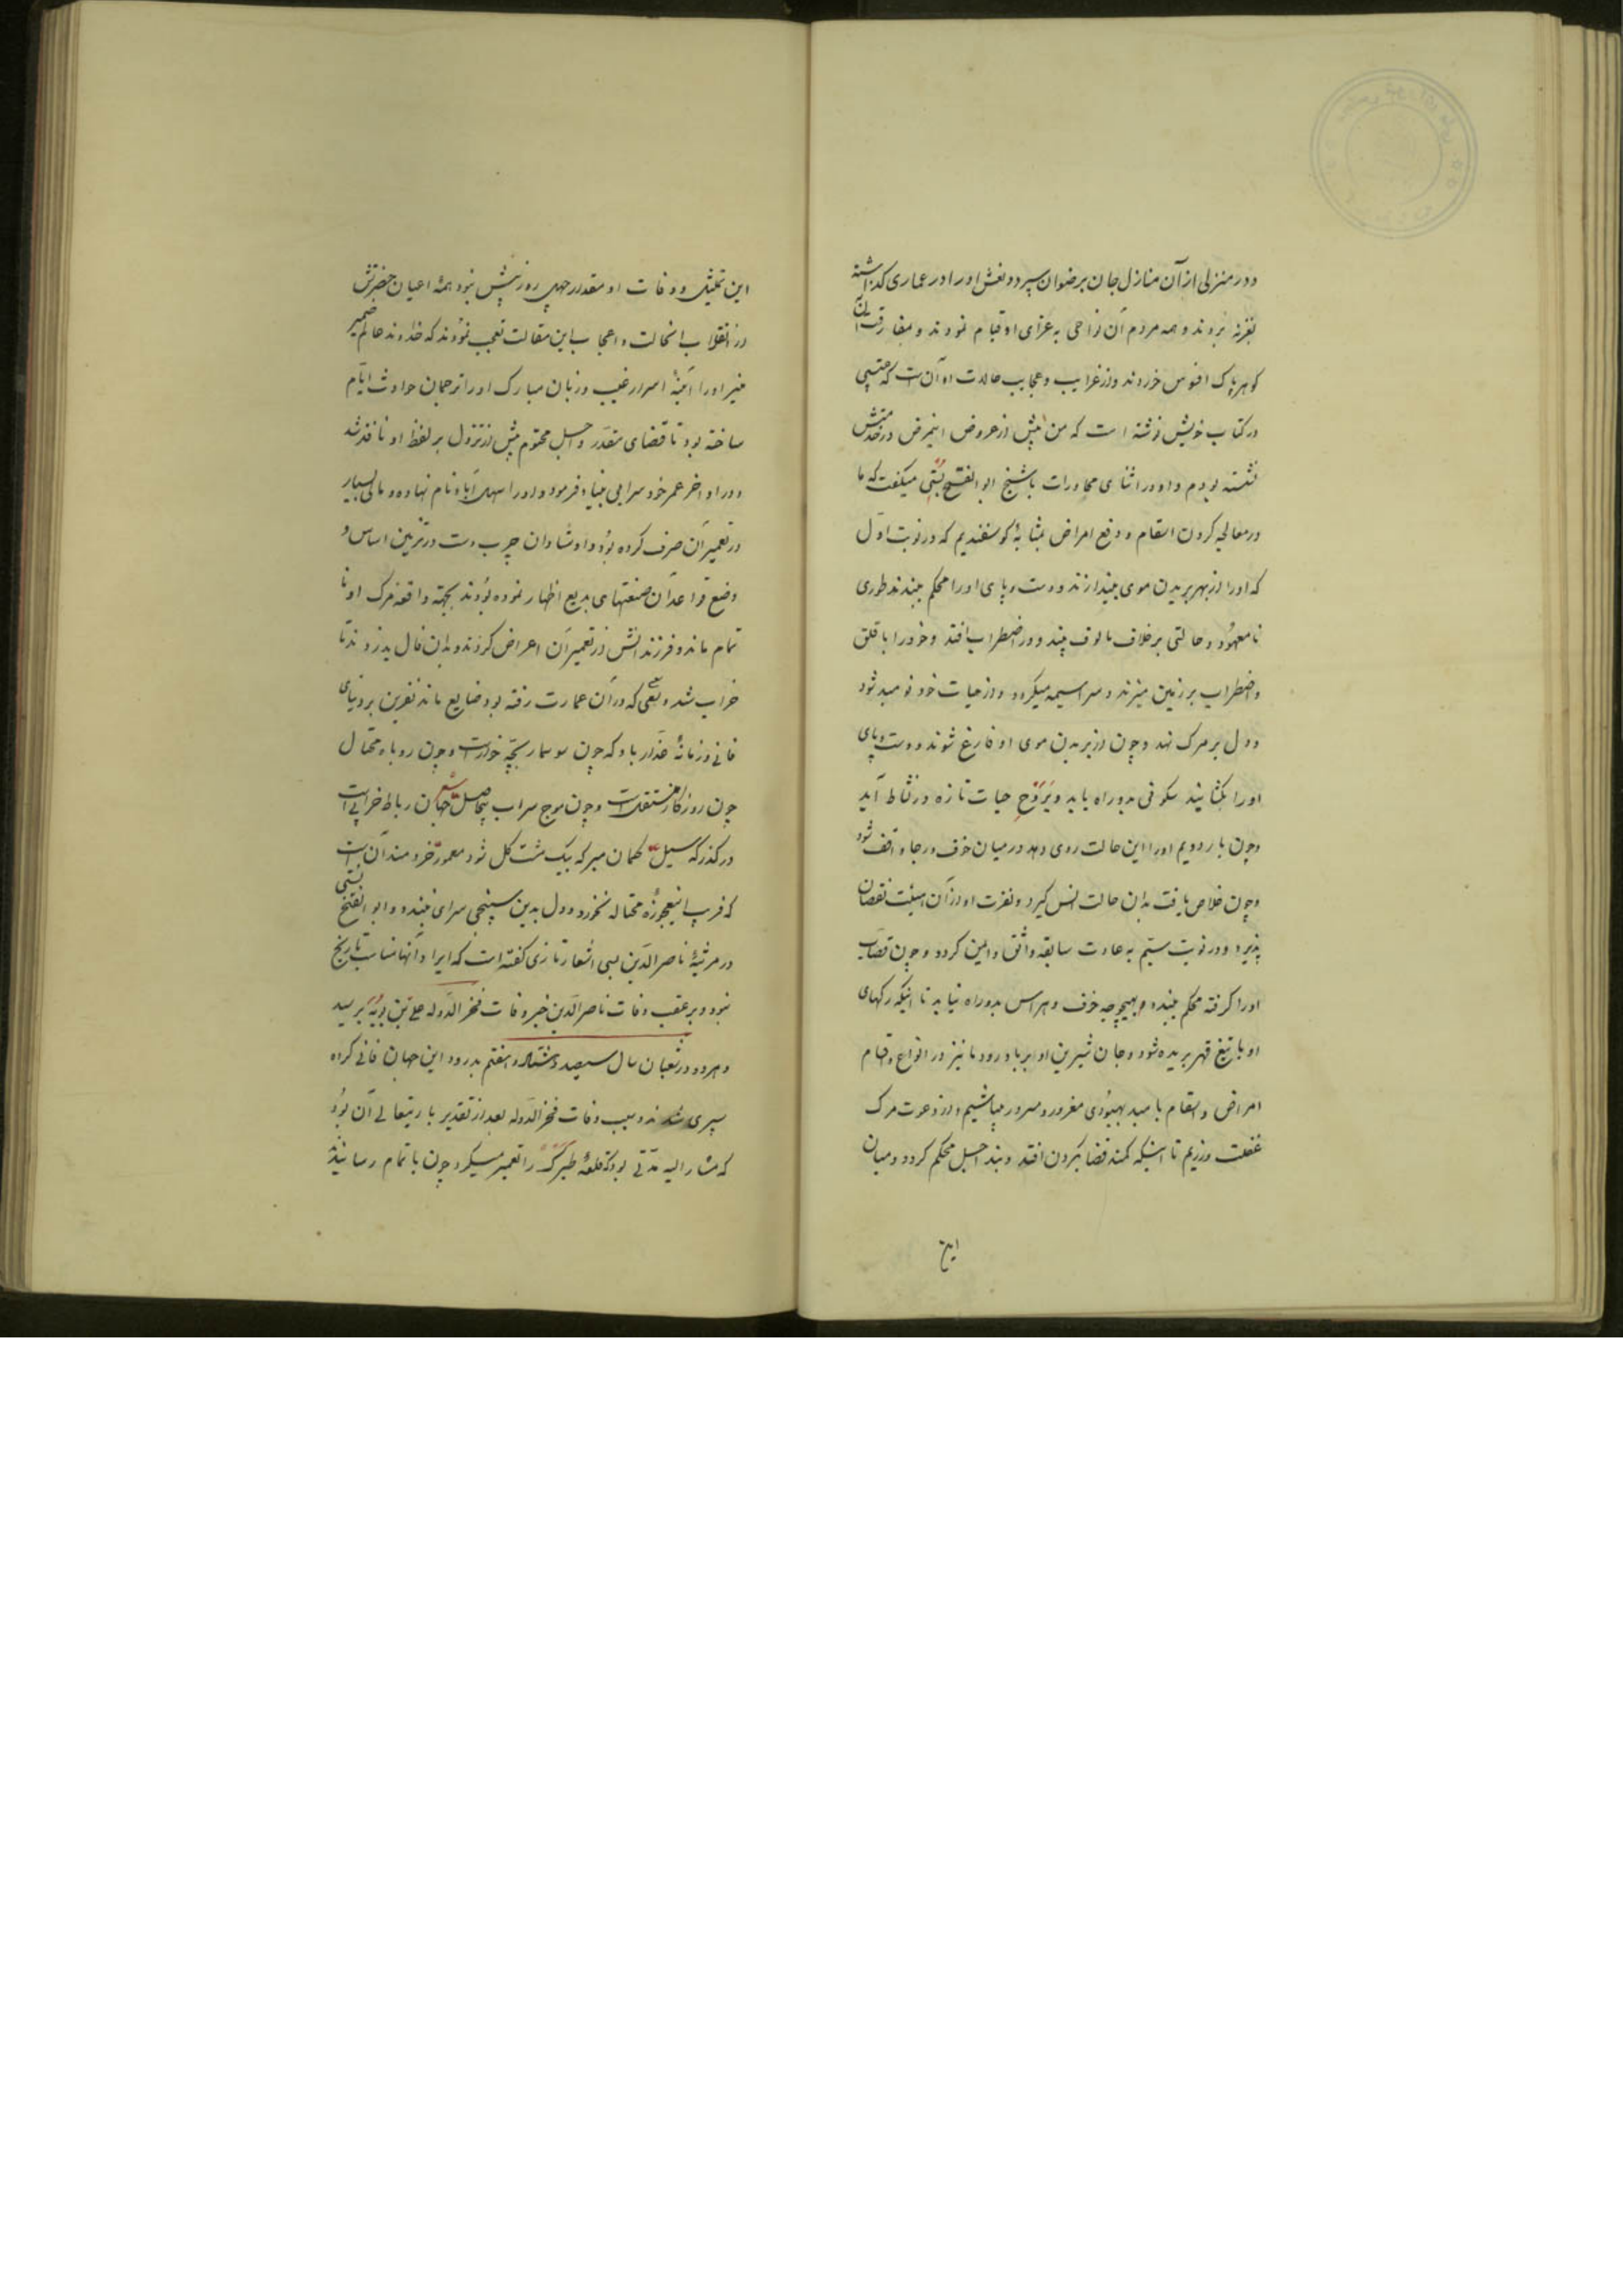 ودر منزلی از آن منازل جان برضوان سپرد ونعش اورا در عماری گذاشته
بغزنه بردند وهمه مردم آن نواحی به عزای او قیام نمودند وبمفارقت آن
گوهر پاک افسوس خوردند واز غرایب وعجایب حالات او آن است که عتبی
در کتاب خویش نوشته است که من پیش از عروض اینمرض در خدمتش
نشسته بودم واو در اثنای محاورات با شیخ ابوالفتح بستی میگفت که ما
در معالجه کردن اسقام ودفع امراض بمثابهٔ گوسفندیم که در نوبت اول
که اورا از بهر بریدن موی بیندازند ودست وپای اورا محکم ببندند طوری
نامعهود وحالتی برخلاف مالوف بیند ودر اضطراب افتد وخودرا با قلق
واضطراب بر زمین میزند وسراسیمه میگردد واز حیات خود نومید شود
ودل بر مرگ نهد وچون از بریدن موی او فارغ شوند ودست وپای
اورا بگشایند سکونی بدو راه یابد وبروح حیات تازه در نشاط آید
وچون بار دویم اورا این حالت روی دهد در میان خوف ورجا واقف شود
وچون خلاص یافت بدان حالت انس گیرد ونفرت او از آن هیئت نقصان
پذیرد ودر نوبت سیم به عادت سابقه واثق وایمن گردد وچون قصاب
اورا گرفته محکم ببندد بهیچوجه خوف وهراس بدو راه نیابد تا اینکه رگهای
او با تیغ قهر بریده شود وجان شیرین او بر باد رود ما نیز در انواع واقسام
امراض واسقام بامید بهبودی مغرور ومسرور میباشیم واز دعوت مرگ
غفلت ورزیم تا اینکه کمند قضا بگردن افتد وبند اجل محکم گردد ومیان
این
این تمثیل ووفات او مقدار چهل روز بیش نبود همهٔ اعیان حضرتش
در انقلاب انحالت واعجاب این مقالت تعجب نمودند که خداوند عالم ضمیر
منیر اورا آئینهٔ اسرار غیب وزبان مبارک اورا ترجمان حوادث ایام
ساخته بود تا قضای مقدر واجل محتوم پیش از نزول بر لفظ او نافذ شد
ودر اواخر عمر خود سرایی بنیاد فرمود واورا سهل آباد نام نهاده ومالی بسیار
در تعمیر آن صرف کرده بود واوستادان چرب دست در تزیین اساس و
وضع قواعد آن صنعتهای بدیع اظهار نموده بودند بجهة واقعه مرگ او نا
تمام ماند وفرزندانش از تعمیر آن اعراض کردند وبدان فال بد زدند تا
خراب شد وسعی که در آن عمارت رفته بود ضایع ماند نفرین بر دنیای
فانی وزمانهٔ غدار باد که چون سوسمار بچه خوار است وچون روباه محتال
چون روزگار متنقل است وچون موج سراب بیحاصل جهان رباط خراب است
در گذرگه سیل گمان مبر که بیک مشت گل شود معمور خردمند آن است
که فریب اینعجوزه محتاله نخورد ودل بدین سپنجی سرای نبندد وابوالفتح بستی
در مرثیهٔ ناصرالدین بسی اشعار تازی گفته است که ایراد آنها مناسب تاریخ
نبود وبر عقب وفات ناصرالدین خبر وفات فخرالدوله علی بن بویه برسید
وهردو در شعبان سال سیصد وهشتاد وهفتم بدرود این جهان فانی کراه
سپری شدند وسبب وفات فخرالدوله بعد از تقدیر باریتعالی آن بود
که مشارالیه مدتی بود که قلعهٔ طبرک را تعمیر میکرد چون باتمام رسانید